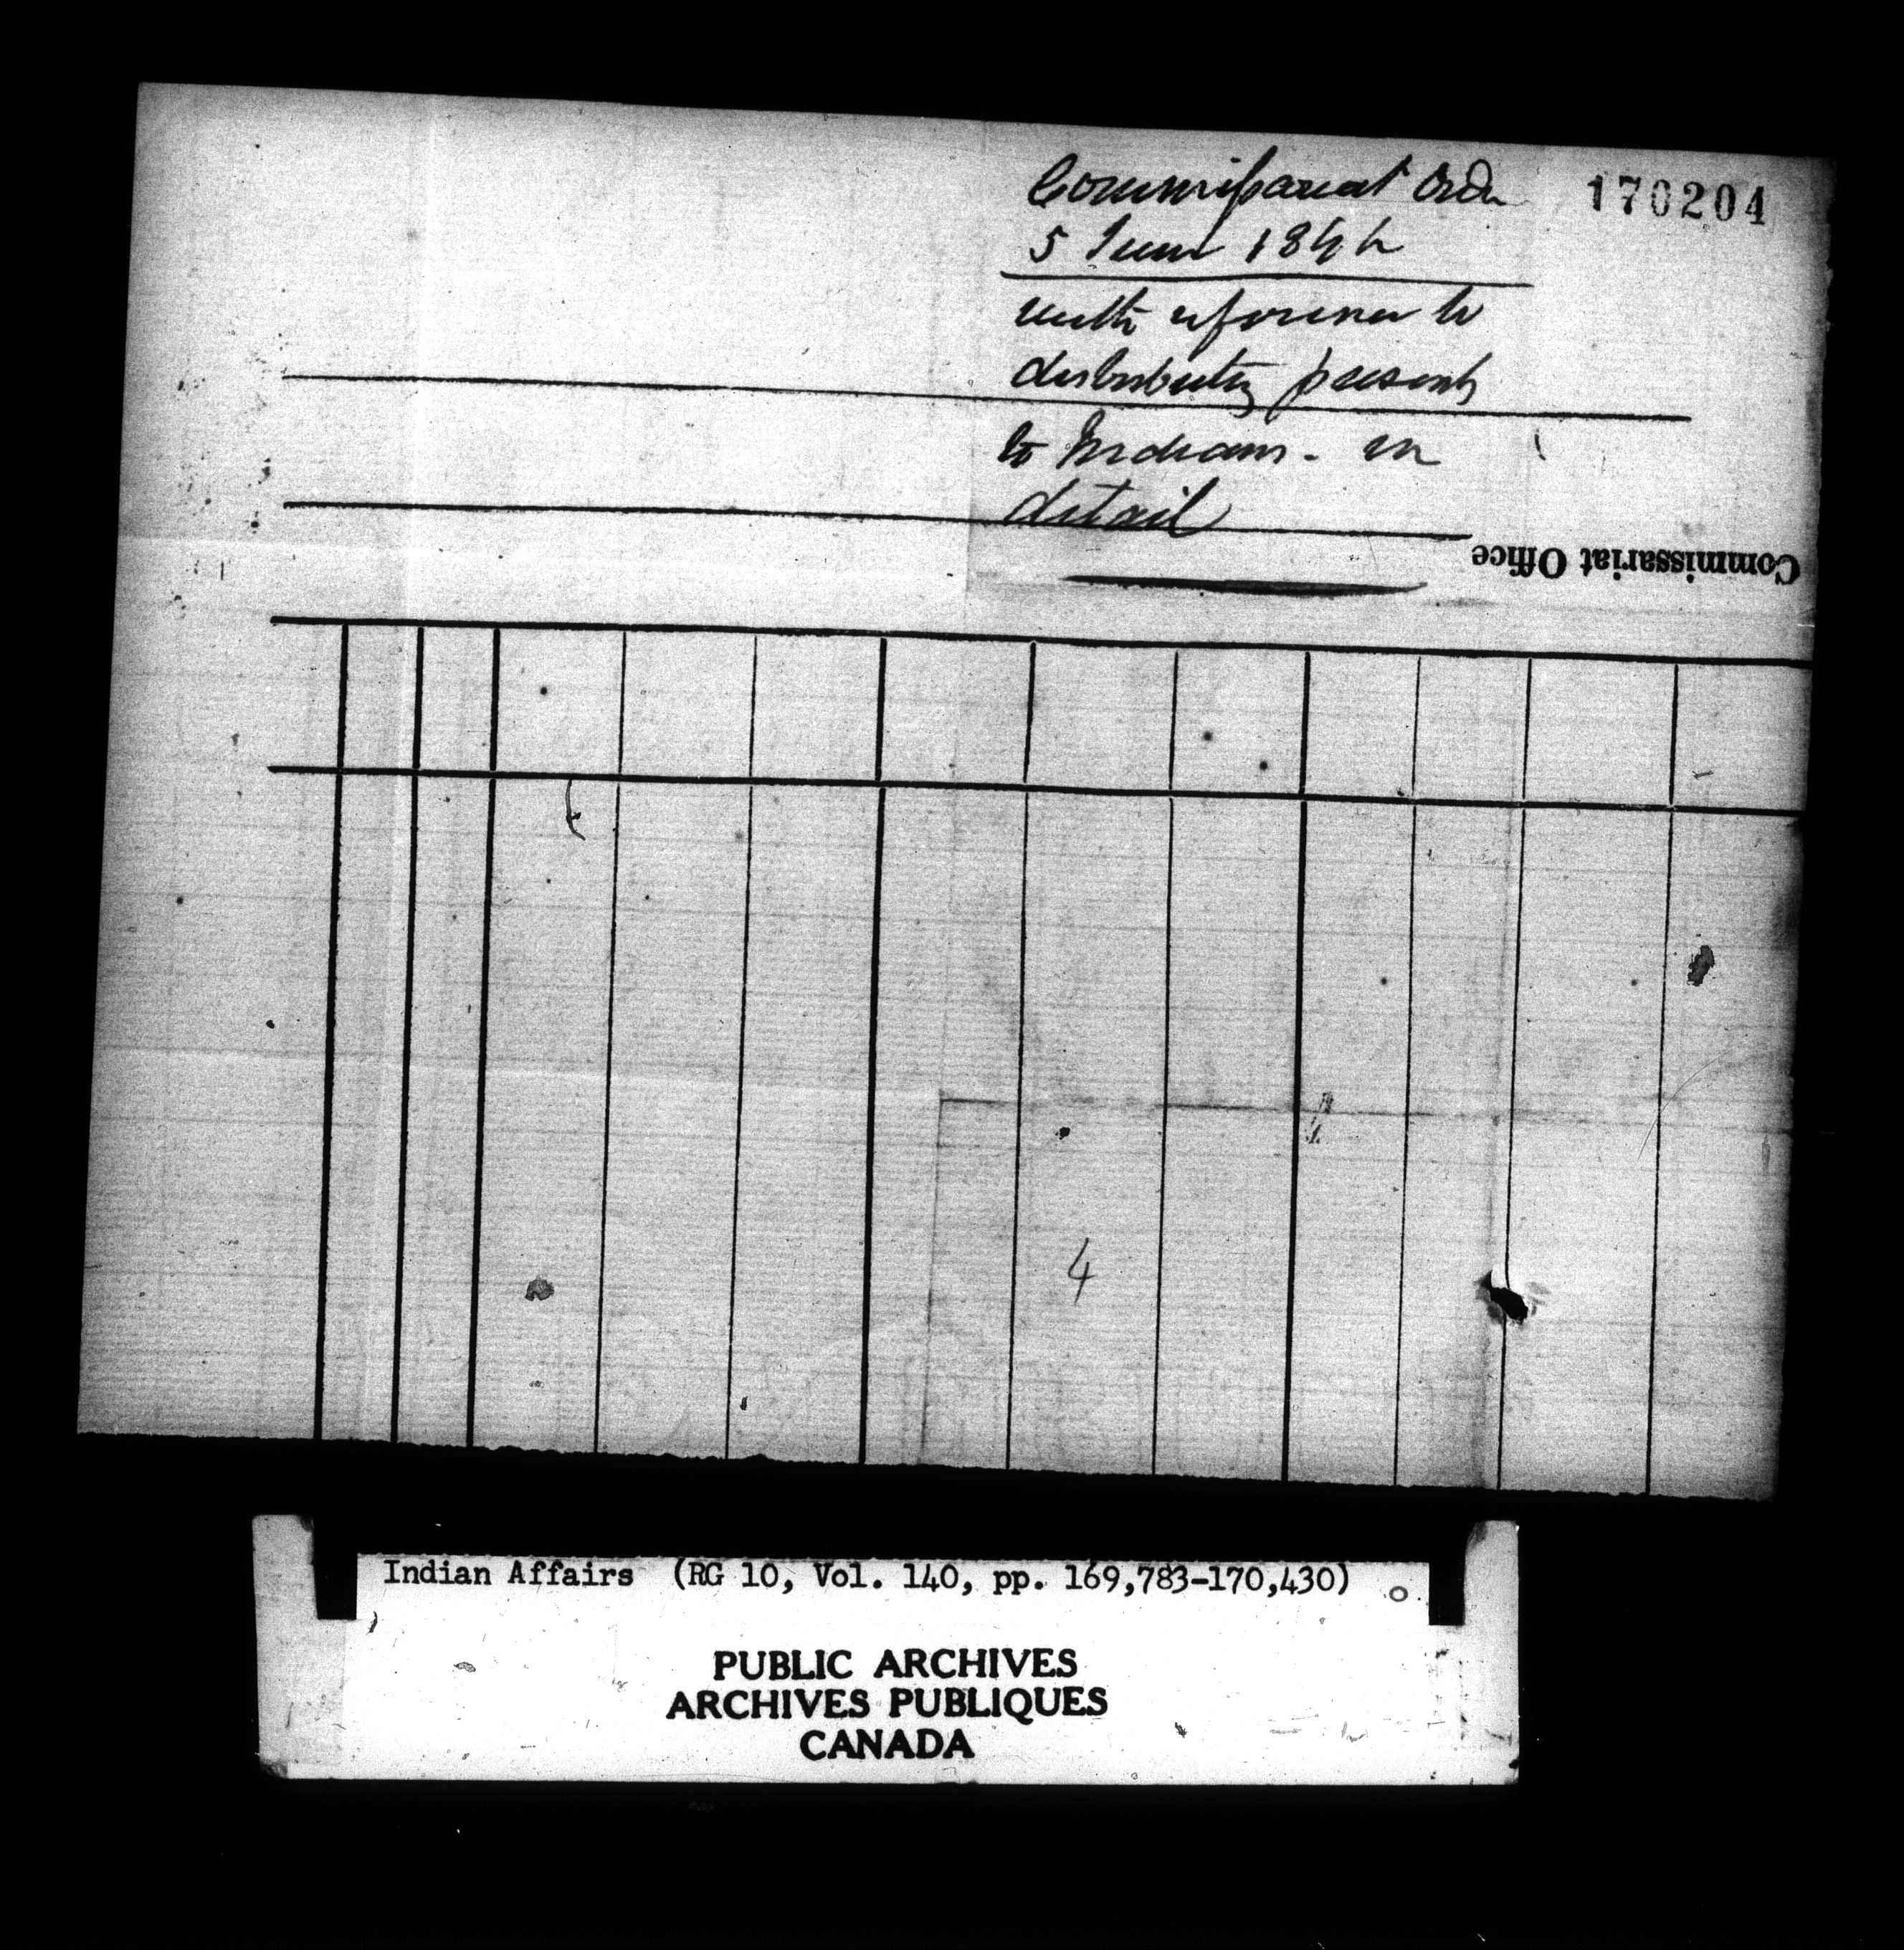 Commissariat Order
170204
5 June 1844
with reference to
distributing presents
to Indians - in
detail
Commissariat Office
4
Indian Affairs (RG 10, Vol. 140, pp. 169,783-170,430)
PUBLIC ARCHIVES
ARCHIVES PUBLIQUES
CANADA